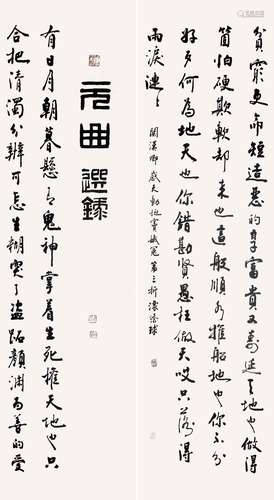 元曲選錄
有日月朝暮懸有鬼神掌着生死權天地也只
合把清濁分辨可怎生糊突了盜跖顏淵為善的受
貧窮更命短造惡的享富貴又壽延天地也做得
箇怕硬欺軟却元來也這般順水推船地也你不分
好歹何為地天也你錯勘賢愚枉做天哎只落得
兩淚漣〻
關漢卿感天動地竇娥冤第三折滾繡球